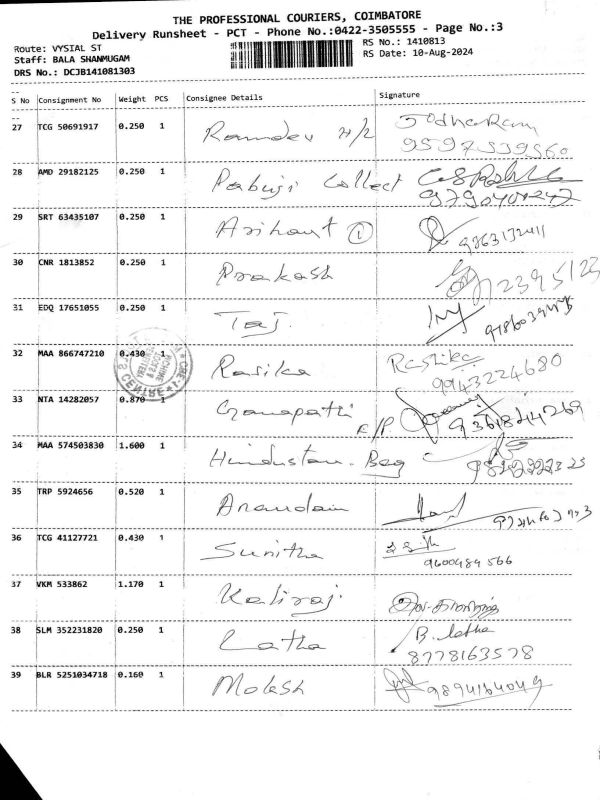 THE PROFESSIONAL COURIERS, COIMBATORE
Delivery Runsheet - PCT - Phone No.:0422-3505555 - Page No.:3
Route: VYSIAL ST
RS No.: 1410813
Staff: BALA SHANMUGAM
RS Date: 10-Aug-2024
DRS No.: DCJB141081303
S No Consignment No Weight PCS Consignee Details Signature
27 TCG 50691917 0.250 1 Ramdev H/2
9597539560
28 AMD 29182125 0.250 1 Pabuji Collect
29 SRT 63435107 0.250 1 Arihant ① 9363132411
30 CNR 1813852 0.250 1 Prakash
31 EDQ 17651055 0.250 1 Taj.
32 MAA 866747210 0.430 1 Rasika Rashika
9943224680
33 NTA 14282057 0.870 1 Ganapathi E/P 9361844269
34 MAA 574503830 1.600 1 Hindustan Bag
35 TRP 5924656 0.520 1
36 TCG 41127721 0.430 1 Sunitha
9600484566
37 VKM 533862 1.170 1 Kaliraj.
38 SLM 352231820 0.250 1 Latha B. latha
8778163578
39 BLR 5251034718 0.160 1 Molesh 9894164049